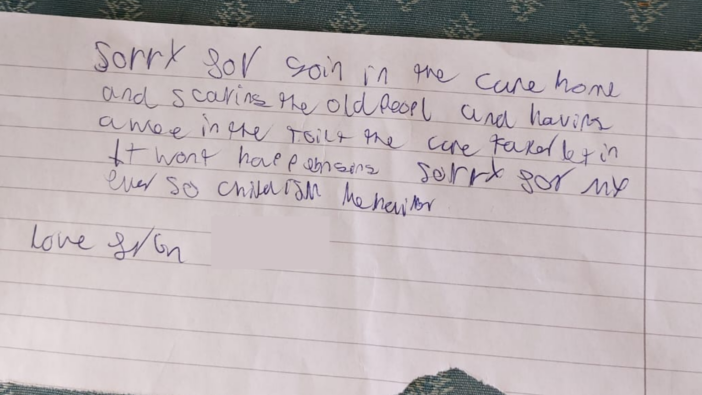 Sorrx for goin in the care home
and scaring the old Peopl and having
a wee in the toilt the care taker let in
It wont happen
Sorrx for mx
ever so childish behavior
Love from